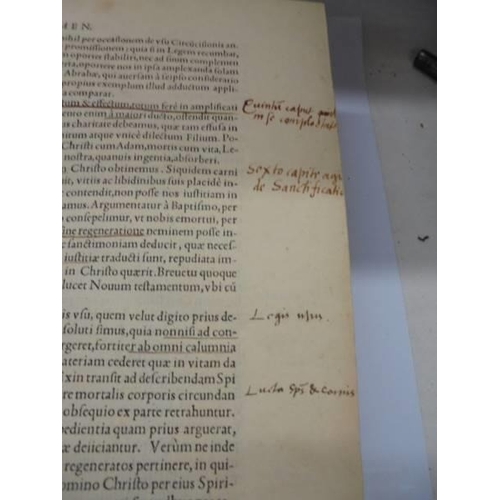 MEN.
nihil per occasionem de vsu Circūcisionis an-
promissionem: quia si in Legem recumbat,
oportet stabiliri, nec ad suum complemen
tera, oportere nos in ipsa amplexanda fidam
Abrahæ, qui auersam à seipso considerario
proprius exemplum illud adductum appli-
a comparar.
tum & effectum, totum ferè in amplificati
nero enim à maiori ducto, ostendit quan-
s charitate debeamus, quæ tam effusa in
irum atque vnicè dilectum Filium. Po-
Christi cum Adam, mortu cum vita, Le-
nostra, quanuis ingentia, absorberi.
Christo obtinemus. Siquidem carni
it, vitiis ac libidinibus suis placidè in-
contendit, non posse nos iustitiam in
amos. Argumentatur à Baptismo, per
consepelimur, vt nobis emortui, per
ine regeneratione neminem posse in-
e sanctimoniam deducit, quæ necef-
iustitiæ traducti sunt, repudiata im-
in Christo quærit. Breuetu quoque
lucet Nouum testamentum, vbi cū
is vsu, quem velut digito prius de-
soluti simus, quia nonnisi ad con-
rgeret, fortiter ab omni calumnia
ateriam cederet quæ in vitam da
x in transit ad describendam Spi
re mortalis corporis circundan
obsequio ex parte retrahuntur.
pedientia quam prius arguerat,
æ deiiciantur. Verùm ne inde
regeneratos pertinere, in qui-
omino Christo per eius Spiri-
Sexto capite
de Sanctificati
Legis usus
Lucta Sp̄s & Carnis